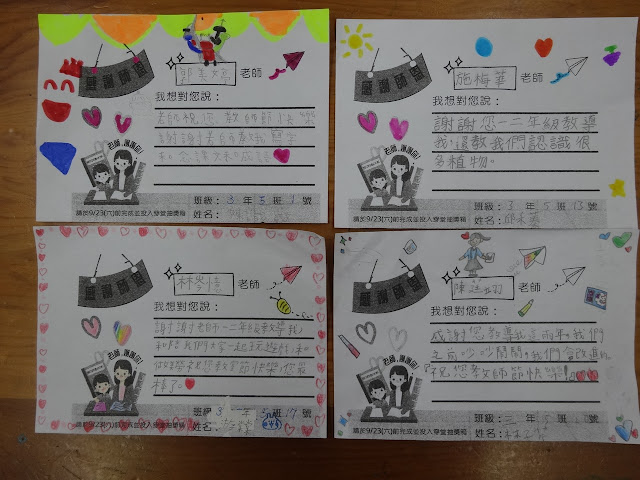 感謝師恩
郭 老師
我想對您說：
老師祝您教師節快樂
謝謝老師教我
老師，謝謝您！
班級：3 年 5 班 1 號
姓名：
請於9/23(六)前完成並投入學堂抽獎箱
感謝師恩
施梅華 老師
我想對您說：
謝謝您一二年級教導
我，還教我們認識很
多植物。
老師，謝謝您！
班級：3 年 5 班 13 號
姓名：邱
請於9/23(六)前完成並投入學堂抽獎箱
感謝師恩
林 老師
我想對您說：
謝謝老師一二年級教導我，
和陪我們大家一起玩遊戲和
祝您教師節快樂！您最
棒了。
老師，謝謝您！
班級：3 年 5 班 17 號
姓名：
請於9/23(六)前完成並投入學堂抽獎箱
感謝師恩
陳 老師
我想對您說：
感謝您教導我這兩年，我們
之前吵吵鬧鬧，我們會改進的，
祝您教師節快樂！
老師，謝謝您！
班級：三 年 5 班 號
姓名：林
請於9/23(六)前完成並投入學堂抽獎箱